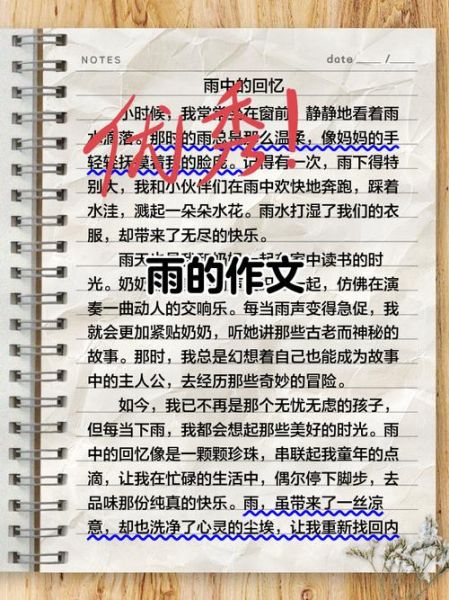 NOTES
date ____ /____
雨中的回忆
小时候，我常常坐在窗前，静静地看着雨
水滴落。那时的雨总是那么温柔，像妈妈的手
轻轻抚摸着我的脸庞。记得有一次，雨下得特
别大，我和小伙伴们在雨中欢快地奔跑，踩着
水洼，溅起一朵朵水花。雨水打湿了我们的衣
服，却带来了无尽的快乐。
优秀！
雨天也是我和奶奶一起在家中读书的时
雨的作文
光。奶奶起，仿佛在演
奏一曲动人的交响乐。每当雨声变得急促，我
就会更加紧贴奶奶，听她讲那些古老而神秘的
故事。那时，我总是幻想着自己也能成为故事
中的主人公，去经历那些奇妙的冒险。
如今，我已不再是那个无忧无虑的孩子，
但每当下雨，我都会想起那些美好的时光。雨
中的回忆像是一颗颗珍珠，串联起我童年的点
滴，让我在忙碌的生活中，偶尔停下脚步，去
品味那份纯真的快乐。雨，虽带来了一丝凉
意，却也洗净了心灵的尘埃，让我重新找回内